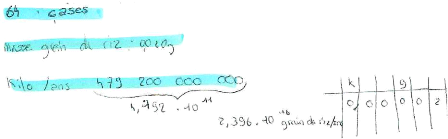 64 cases
masse grain de riz : 0,020g
Kilo /ans 479 200 000 000
4,792 · 10¹¹
2,396 · 10¹⁶ grain de riz/ans
k g
0 0 0 0 0 2